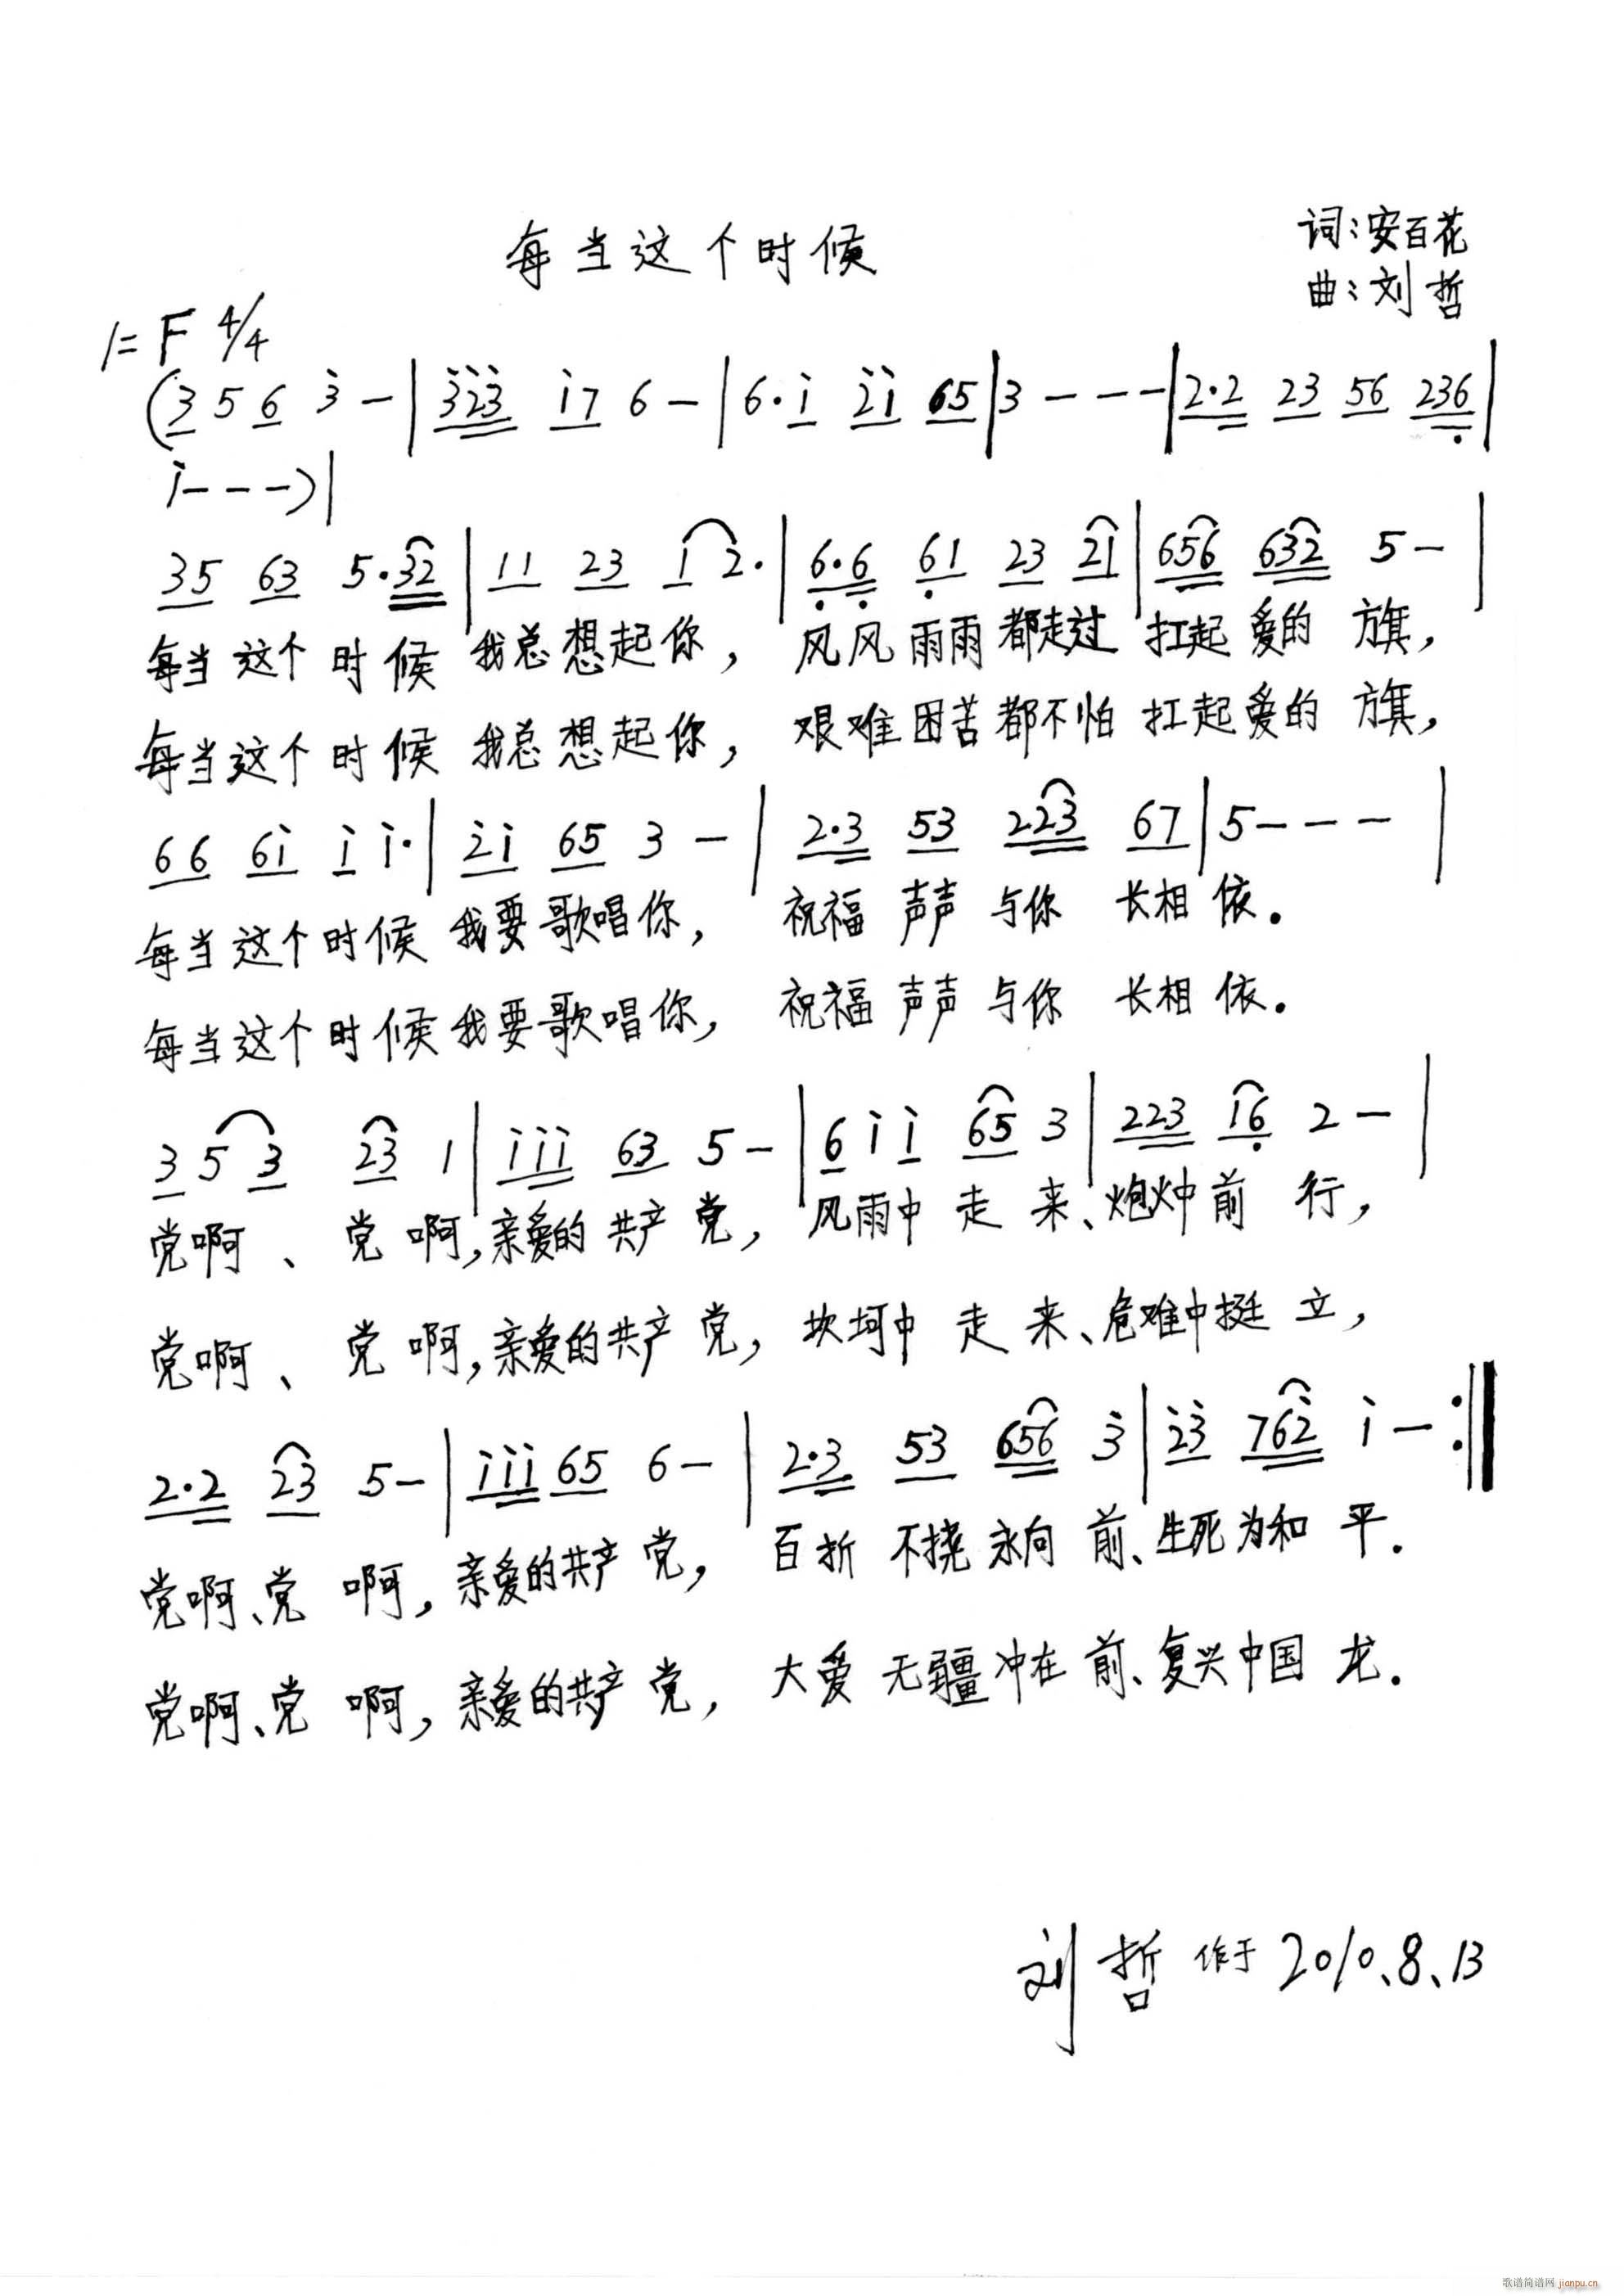 每当这个时候
词:安百花
曲:刘哲
1=F 4/4
(3 5 6 3̇ — | 3̇2̇3̇ i7 6 — | 6·i 2̇i 65 | 3 - - - | 2·2 23 56 236̣ |
i - - -) |
35 63 5·32 | 11 23 1 2· | 6̣·6̣ 6̣1 23 21 | 656 632 5 — |
每当 这个 时 候 我总想起你, 风风雨雨都走过 扛起爱的 旗,
每当这个 时 候 我总想起你, 艰难困苦都不怕 扛起爱的 旗,
66 6i i i· | 2̇i 65 3 — | 2·3 53 223 67 | 5 - - - |
每当这个时候 我要歌唱你, 祝福 声声 与你 长相 依。
每当这个时候 我要歌唱你, 祝福 声声 与你 长相 依。
3 5 3 23 1 | iii 63 5 — | 6 i i 65 3 | 223 16̣ 2 — |
党啊、党 啊,亲爱的 共产 党, 风雨中 走 来、炮火中前 行,
党啊、党 啊,亲爱的共产 党, 坎坷中 走 来、危难中挺 立,
2·2 23 5 — | iii 65 6 — | 2·3 53 656 3̇ | 2̇3̇ 762̇ i — :‖
党啊、党 啊,亲爱的共产 党, 百折 不挠 永向 前、生死为和 平.
党啊、党 啊,亲爱的共产 党, 大爱 无疆冲在 前、复兴中国 龙.
刘哲 作于 2010、8、13
歌谱简谱网 jianpu.cn